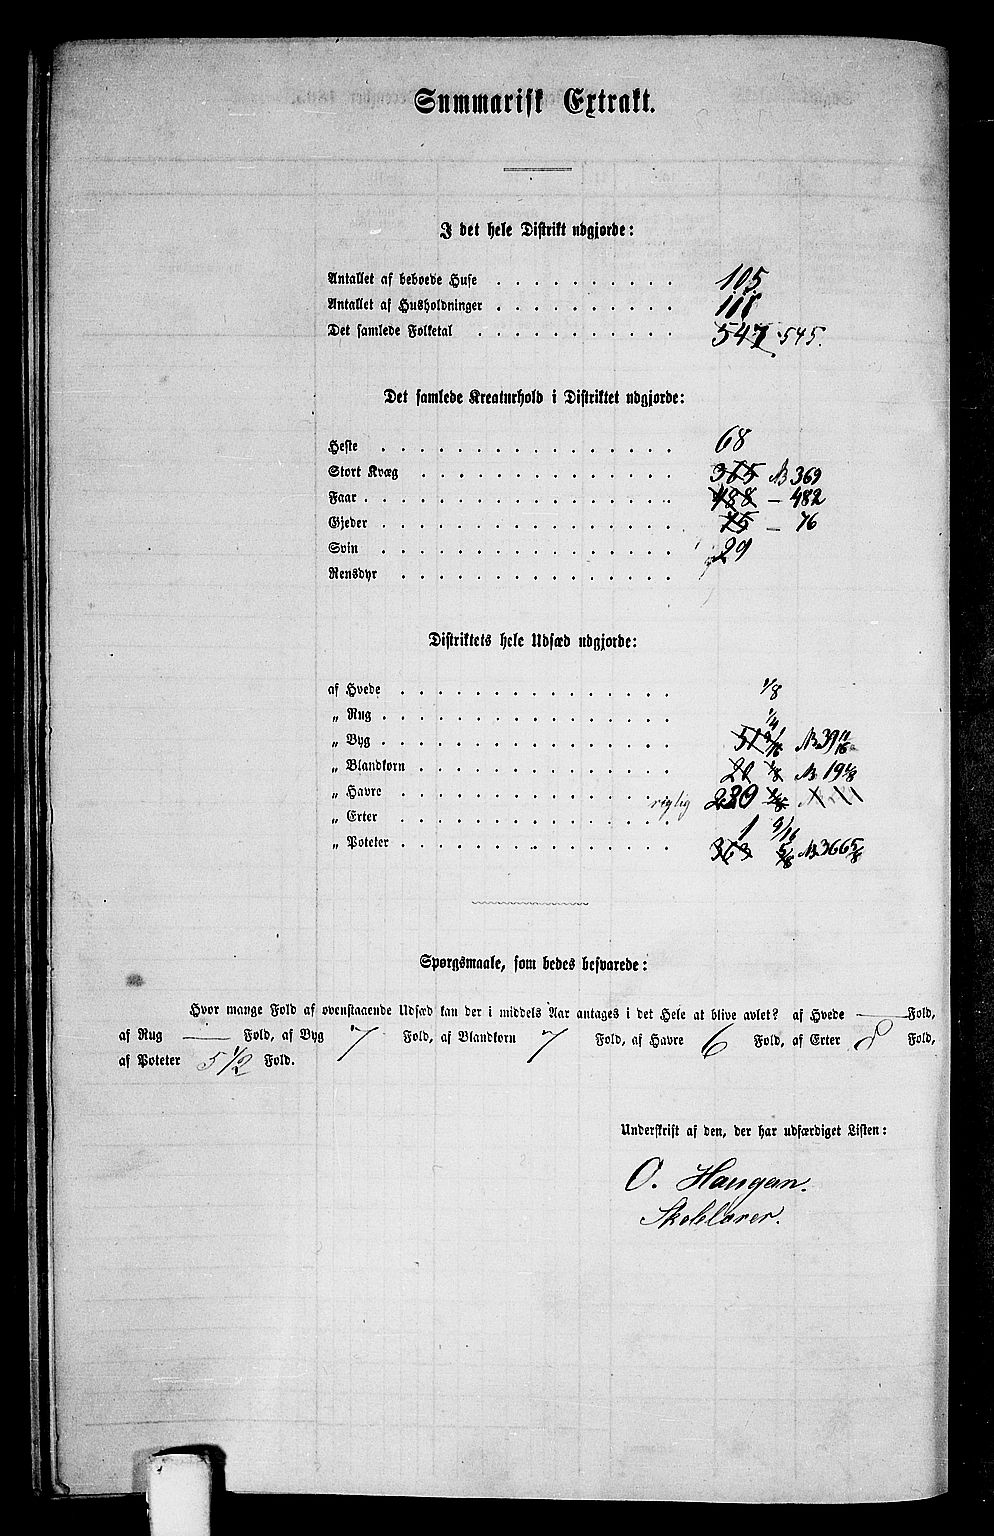 Summarisk Extrakt.
I det hele Distrikt udgjorde:
Antallet af beboede Huse . . . . . . . . . . 105
Antallet af Husholdninger . . . . . . . . . . 118
Det samlede Folketal . . . . . . . . . . . 547 545.
Det samlede Kreaturhold i Distriktet udgjorde:
Heste . . . . . . . . . . . . . . . . 68
Stort Kvæg . . . . . . . . . . . . . . 365 NB 369
Faar . . . . . . . . . . . . . . . . . 488 — 482
Gjeder . . . . . . . . . . . . . . . . 75 — 76
Svin . . . . . . . . . . . . . . . . 29
Rensdyr . . . . . . . . . . . . . . .
Distriktets hele Udsæd udgjorde:
af Hvede . . . . . . . . . . . . . . . 1/8
„ Rug . . . . . . . . . . . . . . . . 1/4
„ Byg . . . . . . . . . . . . . . . . 51 NB 39 11/16
„ Blandkorn . . . . . . . . . . . . . . NB 19 1/8
„ Havre . . . . . . . . . . . . . . . rigtig
„ Erter . . . . . . . . . . . . . . . 1 9/16
„ Poteter . . . . . . . . . . . . . . 363 5/8 NB 366 5/8
Spørgsmaale, som bedes besvarede:
Hvor mange Fold af ovenstaaende Udsæd kan der i middels Aar antages i det Hele at blive avlet? af Hvede — Fold,
af Rug — Fold, af Byg 7 Fold, af Blandkorn 7 Fold, af Havre 6 Fold, af Erter 8 Fold,
af Poteter 5 1/2 Fold.
Underskrift af den, der har udfærdiget Listen:
O. Haugan.
Skolelærer.